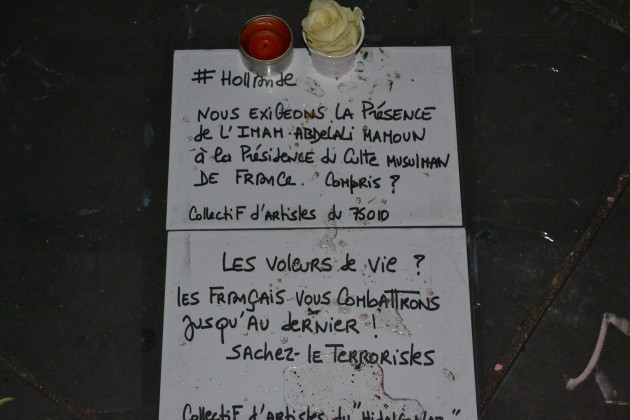 #Hollande
NOUS EXIGEONS LA Présence
de L'IMAM ABDELALI MAMOUN
à la Présidence du Culte MUSULMAN
DE FRANCE. Compris ?
Collectif d'Artistes du 75010
Les voleurs de vie ?
les Français vous Combattrons
jusqu'Au dernier !
Sachez-le Terroristes
Collectif d'Artistes du